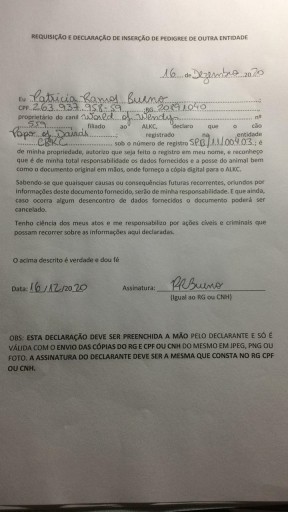 REQUISIÇÃO E DECLARAÇÃO DE INSERÇÃO DE PEDIGREE DE OUTRA ENTIDADE
16 de Dezembro 2020
Eu Patricia Ramos Bueno
CPF 263.937.958-59 RG 20191040
proprietário do canil World of Wendys nº
519 filiado ao ALKC, declaro que o cão
Papor of Danas registrado na entidade
CBKC sob o número de registro SPB/11/00903; é
de minha propriedade, autorizo que seja feito o registro em meu nome, e reconheço
que é de minha total responsabilidade os dados fornecidos e a posse do animal bem
como o documento original em mãos, onde forneço a cópia digital para o ALKC.
Sabendo-se que quaisquer causas ou consequências futuras recorrentes, oriundos por
informações deste documento fornecido, serão de minha responsabilidade. E que ainda,
caso ocorra algum desencontro de dados fornecidos o documento poderá ser
cancelado.
Tenho ciência dos meus atos e me responsabilizo por ações cíveis e criminais que
possam recorrer sobre as informações aqui declaradas.
O acima descrito é verdade e dou fé
Data: 16/12/2020 Assinatura: PRBueno
(Igual ao RG ou CNH)
OBS: ESTA DECLARAÇÃO DEVE SER PREENCHIDA A MÃO PELO DECLARANTE E SÓ É
VÁLIDA COM O ENVIO DAS CÓPIAS DO RG E CPF OU CNH DO MESMO EM JPEG, PNG OU
FOTO. A ASSINATURA DO DECLARANTE DEVE SER A MESMA QUE CONSTA NO RG CPF
OU CNH.